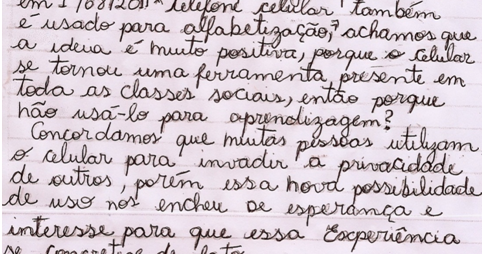 em 17/03/2011 "Telefone celular também
é usado para alfabetização," achamos que
a ideia é muito positiva, porque o celular
se tornou uma ferramenta presente em
toda as classes sociais, então porque
não usá-lo para aprendizagem?
Concordamos que muitas pessoas utilizam
o celular para invadir a privacidade
de outros, porém essa nova possibilidade
de uso nos encheu de esperança e
interesse para que essa Experiência
se concretize de fato